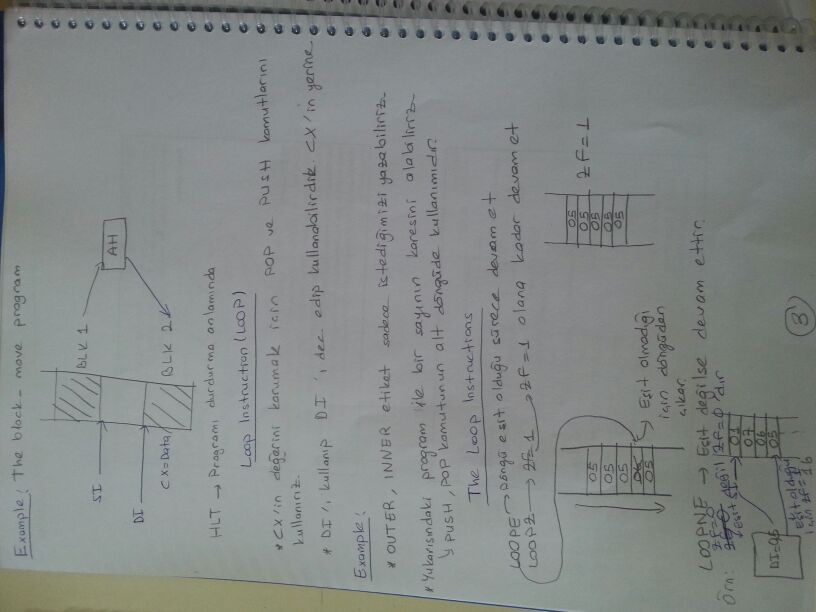 Example: The block-move program
BLK 1
AH
SI
DI
BLK 2
CX=Data
HLT → Programı durdurma anlamında
Loop Instruction (LOOP)
* CX'in değerini korumak için POP ve PUSH komutlarını
kullanırız.
* DI'ı kullanıp DI'ı dec edip kullanabilirdik. CX'in yerine
Example:
* OUTER, INNER etiket sadece istediğimizi yazabiliriz.
* Yukarısındaki program ile bir sayının karesini alabiliriz.
PUSH, POP komutunun alt döngüde kullanımıdır.
The Loop Instructions
LOOPE → Döngü eşit olduğu sürece devam et
LOOPZ → ZF=1 → ZF=1 olana kadar devam et
05
05
05
06
05
Eşit olmadığı
için döngüden
çıkar.
05
05
05
05
05
ZF=1
LOOPNE → Eşit değilse devam ettir.
ZF=0
Örn:
eşit değil ZF=0'dır
01
07
06
05
DI=05
Eşit olduğu
için ZF=1
3